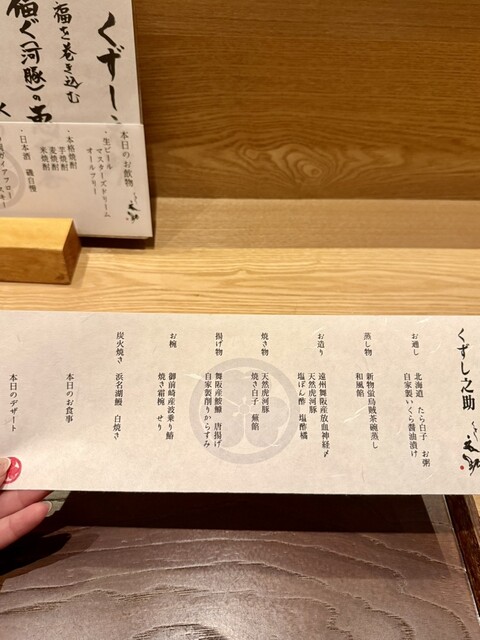 くずし
福を巻き込む
福ぐ(河豚)の
本日のお飲物
・生ビール
マスターズドリーム
オールフリー
・本格焼酎
芋焼酎
麦焼酎
米焼酎
・日本酒 磯自慢
くずし之助
お通し
北海道 たら白子 お粥
自家製いくら醤油漬け
蒸し物
新物蛍烏賊茶碗蒸し
和風餡
お造り
遠州舞阪産放血神経〆
天然虎河豚
塩ぽん酢 塩酢橘
焼き物
天然虎河豚
焼き白子 蕪餡
揚げ物
舞阪産鮟鱇 唐揚げ
自家製削りからすみ
お椀
御前崎産波乗り鰆
焼き霜椀 せり
炭火焼き
浜名湖鰻 白焼き
本日のお食事
本日のデザート